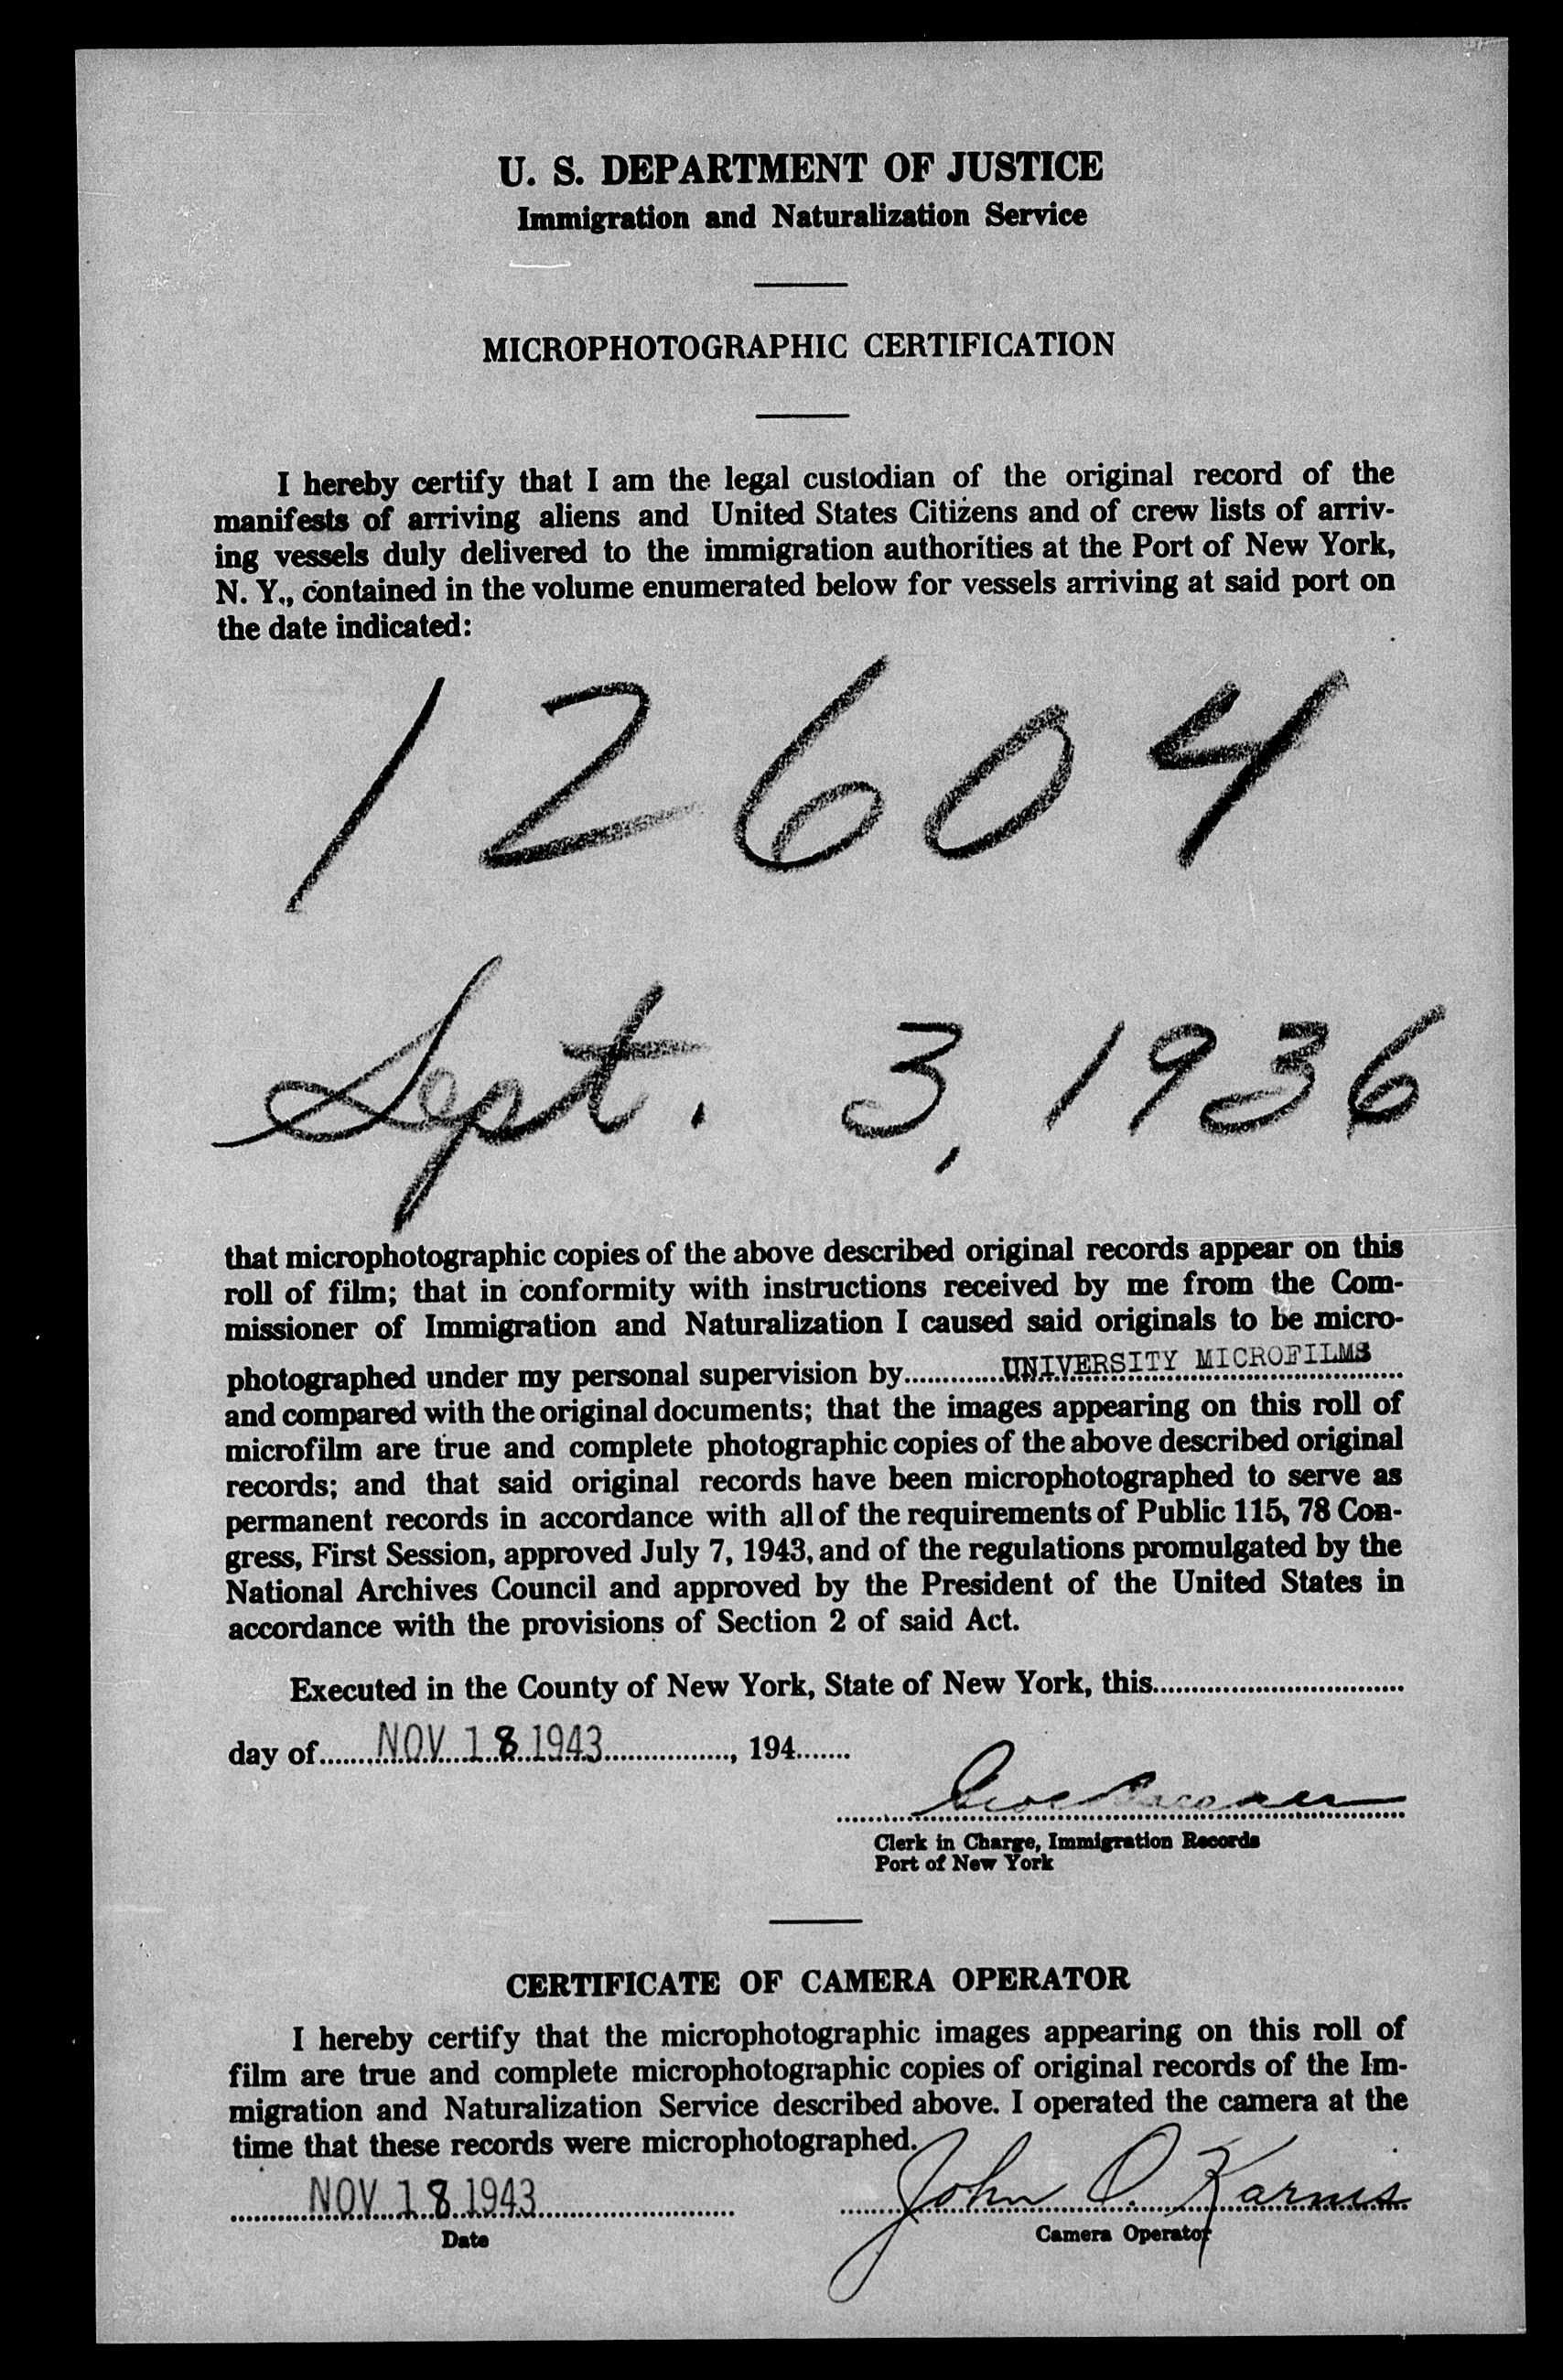 U. S. DEPARTMENT OF JUSTICE
Immigration and Naturalization Service
MICROPHOTOGRAPHIC CERTIFICATION
I hereby certify that I am the legal custodian of the original record of the
manifests of arriving aliens and United States Citizens and of crew lists of arriv-
ing vessels duly delivered to the immigration authorities at the Port of New York,
N. Y., contained in the volume enumerated below for vessels arriving at said port on
the date indicated:
12604
Sept. 3, 1936
that microphotographic copies of the above described original records appear on this
roll of film; that in conformity with instructions received by me from the Com-
missioner of Immigration and Naturalization I caused said originals to be micro-
photographed under my personal supervision by.............UNIVERSITY MICROFILMS
and compared with the original documents; that the images appearing on this roll of
microfilm are true and complete photographic copies of the above described original
records; and that said original records have been microphotographed to serve as
permanent records in accordance with all of the requirements of Public 115, 78 Con-
gress, First Session, approved July 7, 1943, and of the regulations promulgated by the
National Archives Council and approved by the President of the United States in
accordance with the provisions of Section 2 of said Act.
Executed in the County of New York, State of New York, this................................
day of.......NOV 18 1943................, 194.......
Clerk in Charge, Immigration Records
Port of New York
CERTIFICATE OF CAMERA OPERATOR
I hereby certify that the microphotographic images appearing on this roll of
film are true and complete microphotographic copies of original records of the Im-
migration and Naturalization Service described above. I operated the camera at the
time that these records were microphotographed.
NOV 18 1943 John O. Karnis
Date Camera Operator